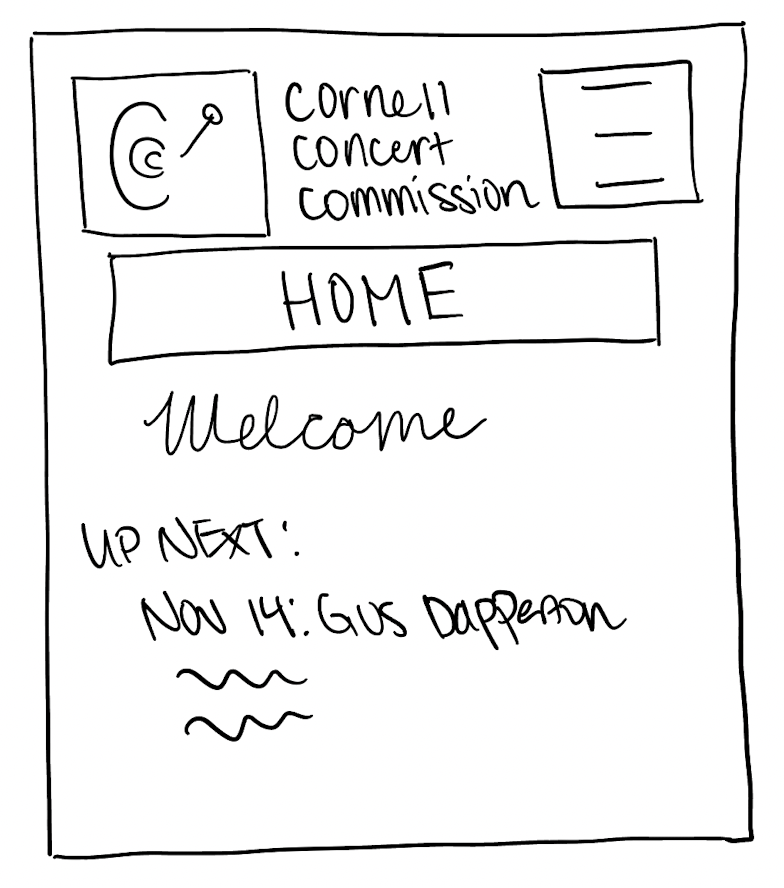 cornell
concert
commission
HOME
Welcome
UP NEXT:
NOV 14: GUS Dapperton